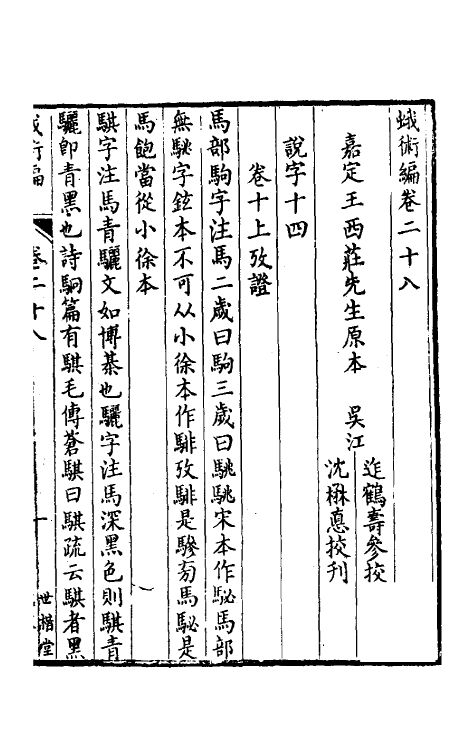 蛾術編卷二十八
嘉定王西莊先生原本 吳江
迮鶴壽參挍
沈楙悳挍刋
說字十四
卷十上攷證
馬部駒字注馬二歲曰駒三歲曰駣駣宋本作駜馬部
無駣字鉉本不可从小徐本作騑攷騑是驂旁馬駜是
馬飽當從小徐本
騏字注馬青驪文如博棊也驪字注馬深黑色則騏青
驪卽青黑也詩駉篇有騏毛傳蒼騏曰騏疏云騏者黑
蛾術編 卷二十八 一 世楷堂